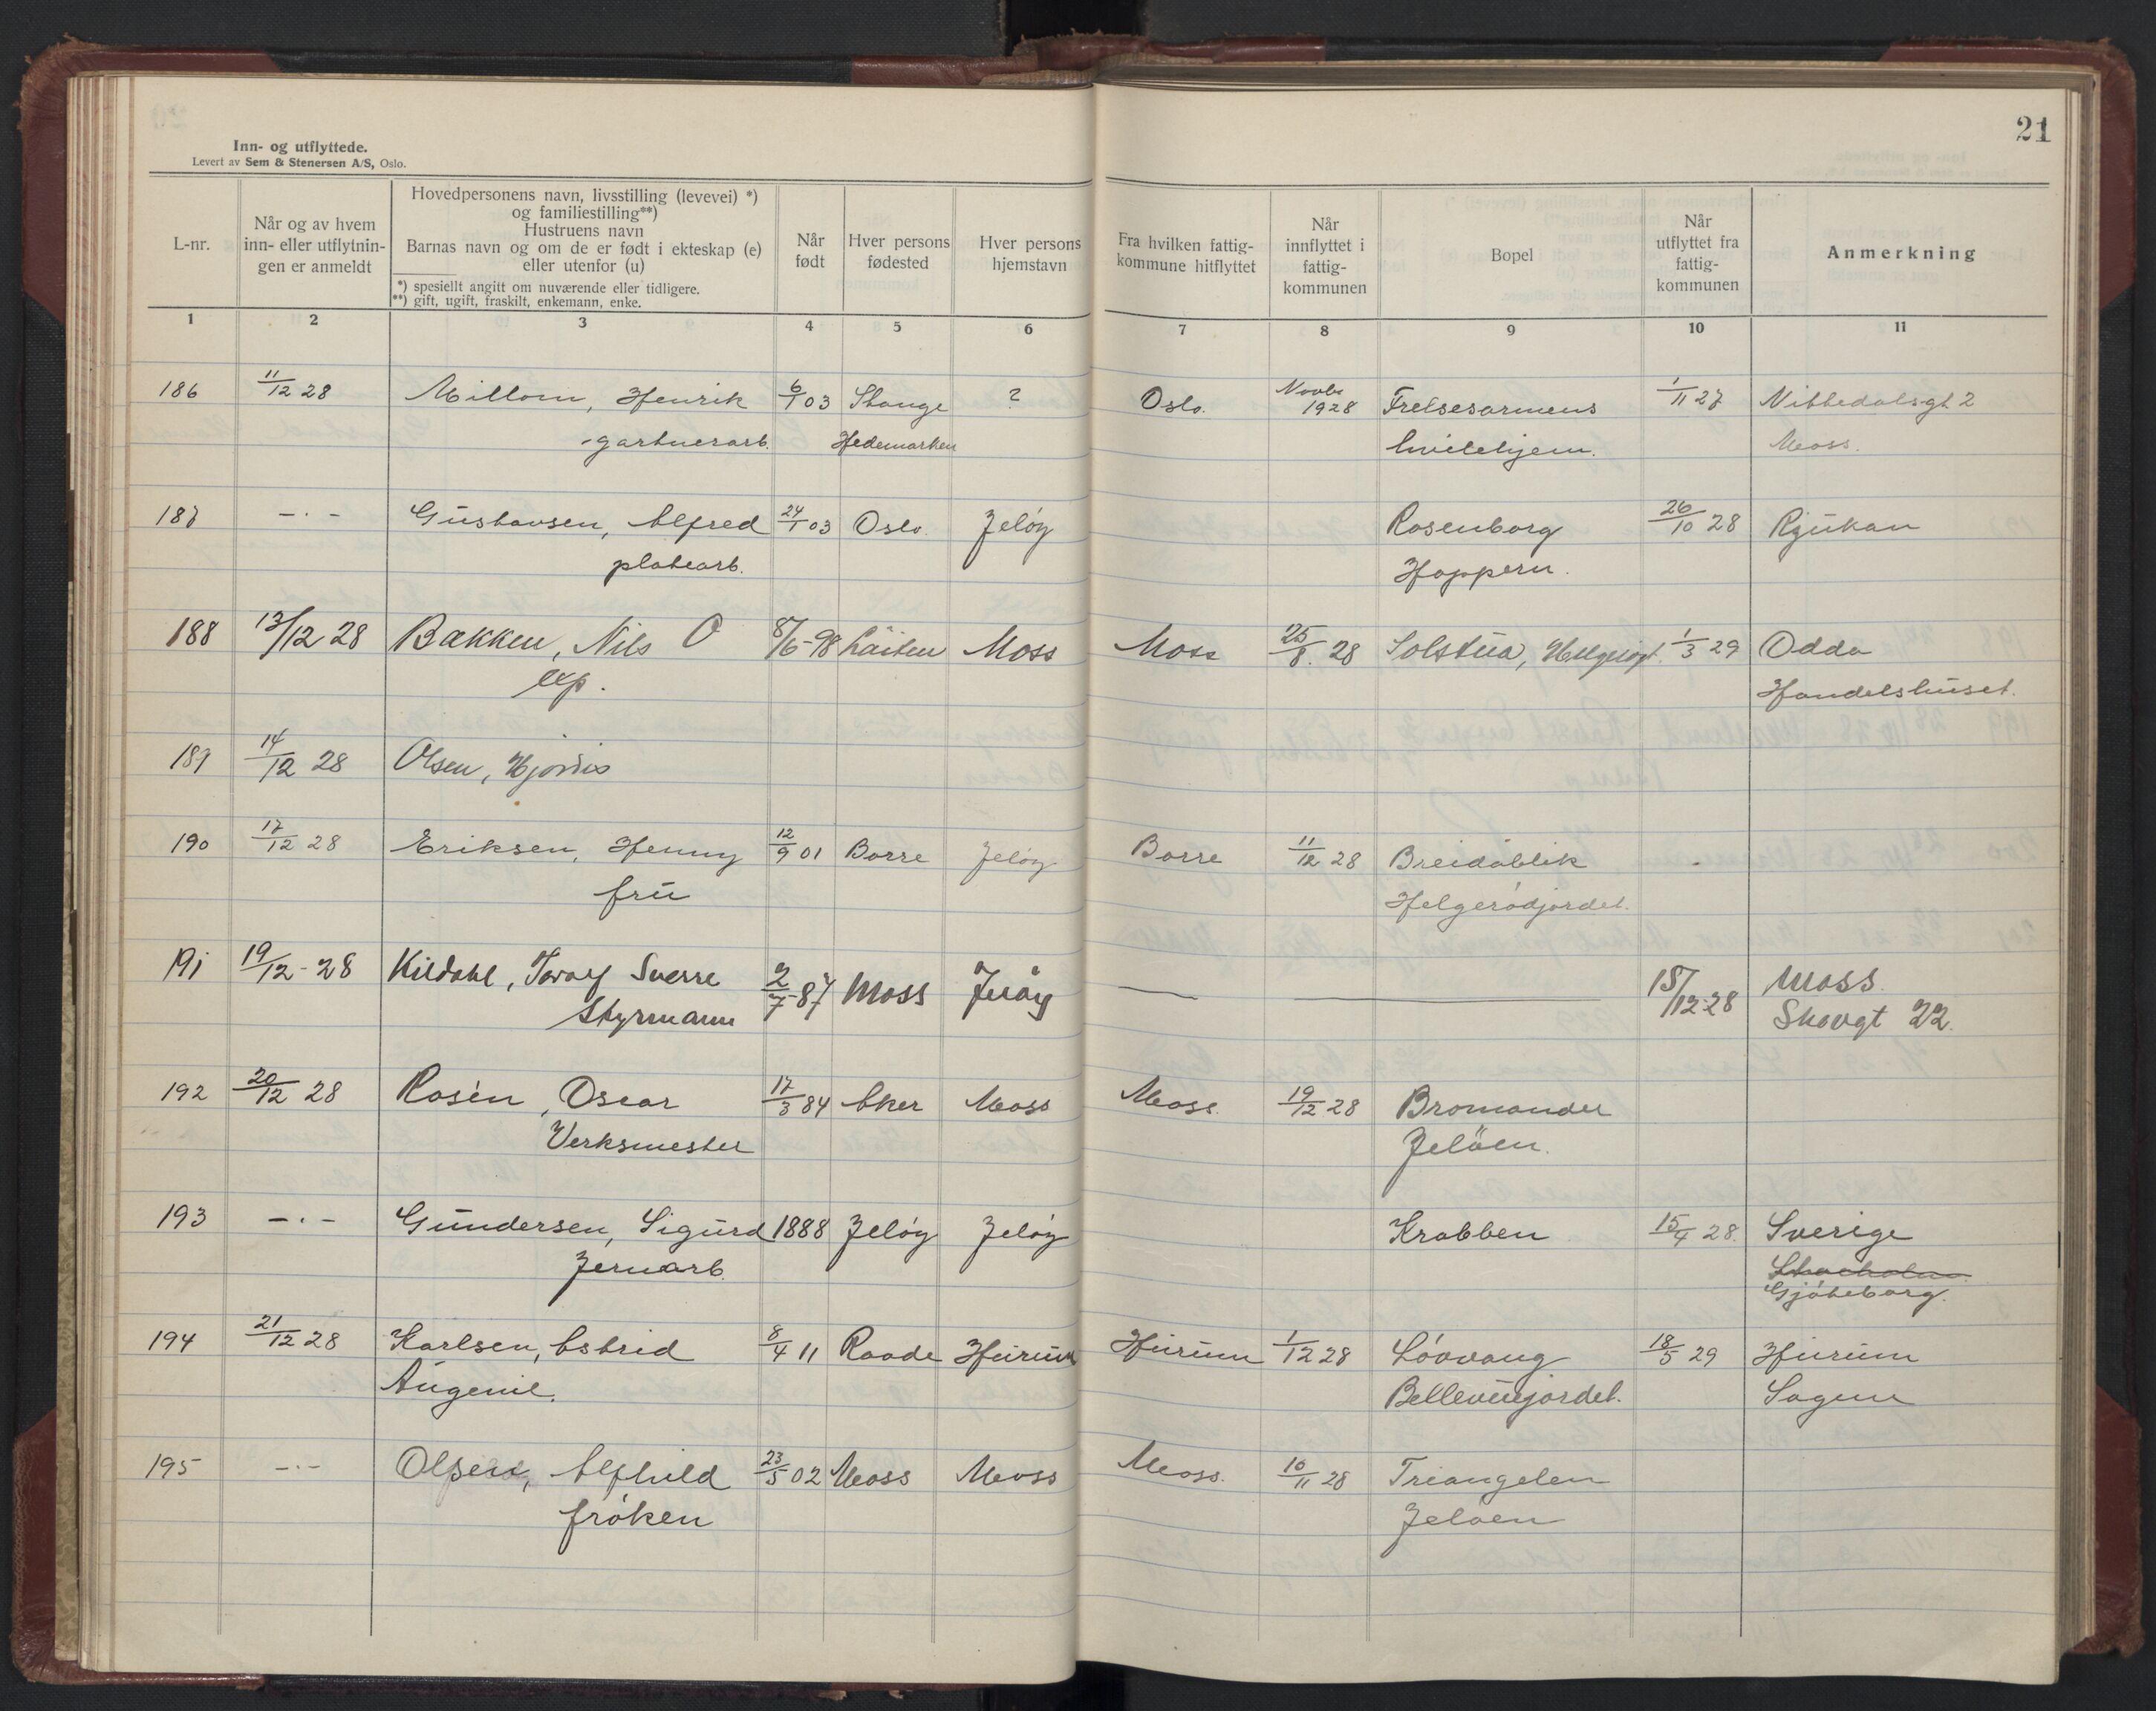 21
Inn- og utflyttede.
Levert av Sem & Stenersen A/S, Oslo.
L-nr.
Når og av hvem
inn- eller utflytnin-
gen er anmeldt
Hovedpersonens navn, livsstilling (levevei) *)
og familiestilling**)
Hustruens navn
Barnas navn og om de er født i ekteskap (e)
eller utenfor (u)
*) spesiellt angitt om nuværende eller tidligere.
**) gift, ugift, fraskilt, enkemann, enke.
Når
født
Hver persons
fødested
Hver persons
hjemstavn
Fra hvilken fattig-
kommune hitflyttet
Når
innflyttet i
fattig-
kommunen
Bopel
Når
utflyttet fra
fattig-
kommunen
Anmerkning
1 2 3 4 5 6 7 8 9 10 11
186 11/12 28 Millom, Henrik 6/1 03 Stange ? Oslo. Novbr 1928 Frelsesarmens 1/11 27 Nittedalsgt 2
gartnerarb. Hedemarken hvilehjem. Moss.
187 -·- Gustavsen, Alfred 24/1 03 Oslo. Jeløy Rosenborg 26/10 28 Rjukan
platearb. Hoppern.
188 13/12 28 Bakken, Nils O 8/6-98 Løiten Moss Moss 25/8. 28 Solstua, 1/3 29 Odda
Handelshuset.
189 14/12 28 Olsen, Hjørdis
190 17/12 28 Eriksen, Henny 12/9 01 Borre Jeløy Borre 11/12 28 Breidablik -
fru Helgerødjordet.
191 19/12-28 Kildahl, Sverre 2/7-87 Moss Jeløy — — 15/12-28 Moss.
Styrmann Skovgt 22.
192 20/12 28 Rosén, Oscar 17/3 84 Aker Moss Moss. 19/12 28 Bromander
Verksmester Jeløen.
193 -·- Gundersen, Sigurd 1888 Jeløy Jeløy Krabben 15/4 28. Sverige
Jernarb. Stocholm
Gjøteborg.
194 21/12 28 Karlsen, Astrid 8/4 11 Raade Hurum Hurum 1/12 28 Løvvang 18/5 29 Hurum
Augenie. Bellevuejordet. Sagene
195 -·- Olsen, Alfhild 23/5 02 Moss Moss Moss. 10/11 28 Triangelen
frøken Jeløen